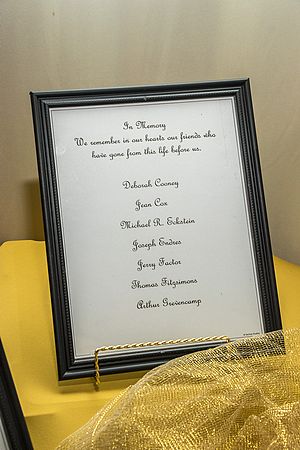 In Memory
We remember in our hearts our friends who
have gone from this life before us.
Deborah Cooney
Jean Cox
Michael R. Eckstein
Joseph Endres
Jerry Factor
Thomas Fitzsimons
Arthur Grevencamp